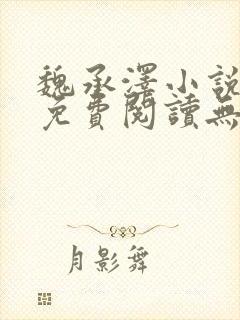 魏承澤小說
免費閱讀無
月影舞